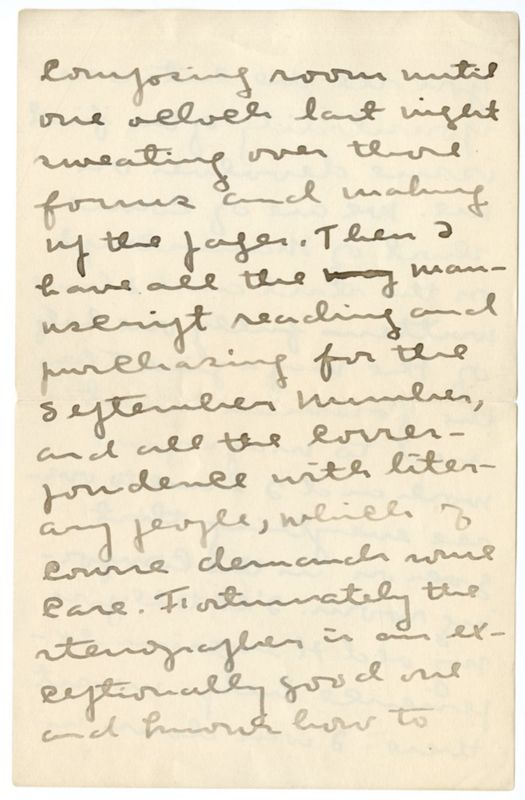 composing room until
one oclock last night
sweating over those
forms and making
up the pages. Then I
have all the many man-
uscript reading and
purchasing for the
September number,
and all the corres-
pondence with liter-
ary people, which of
course demands some
care. Fortunately the
stenographer is an ex-
ceptionally good one
and knows how to